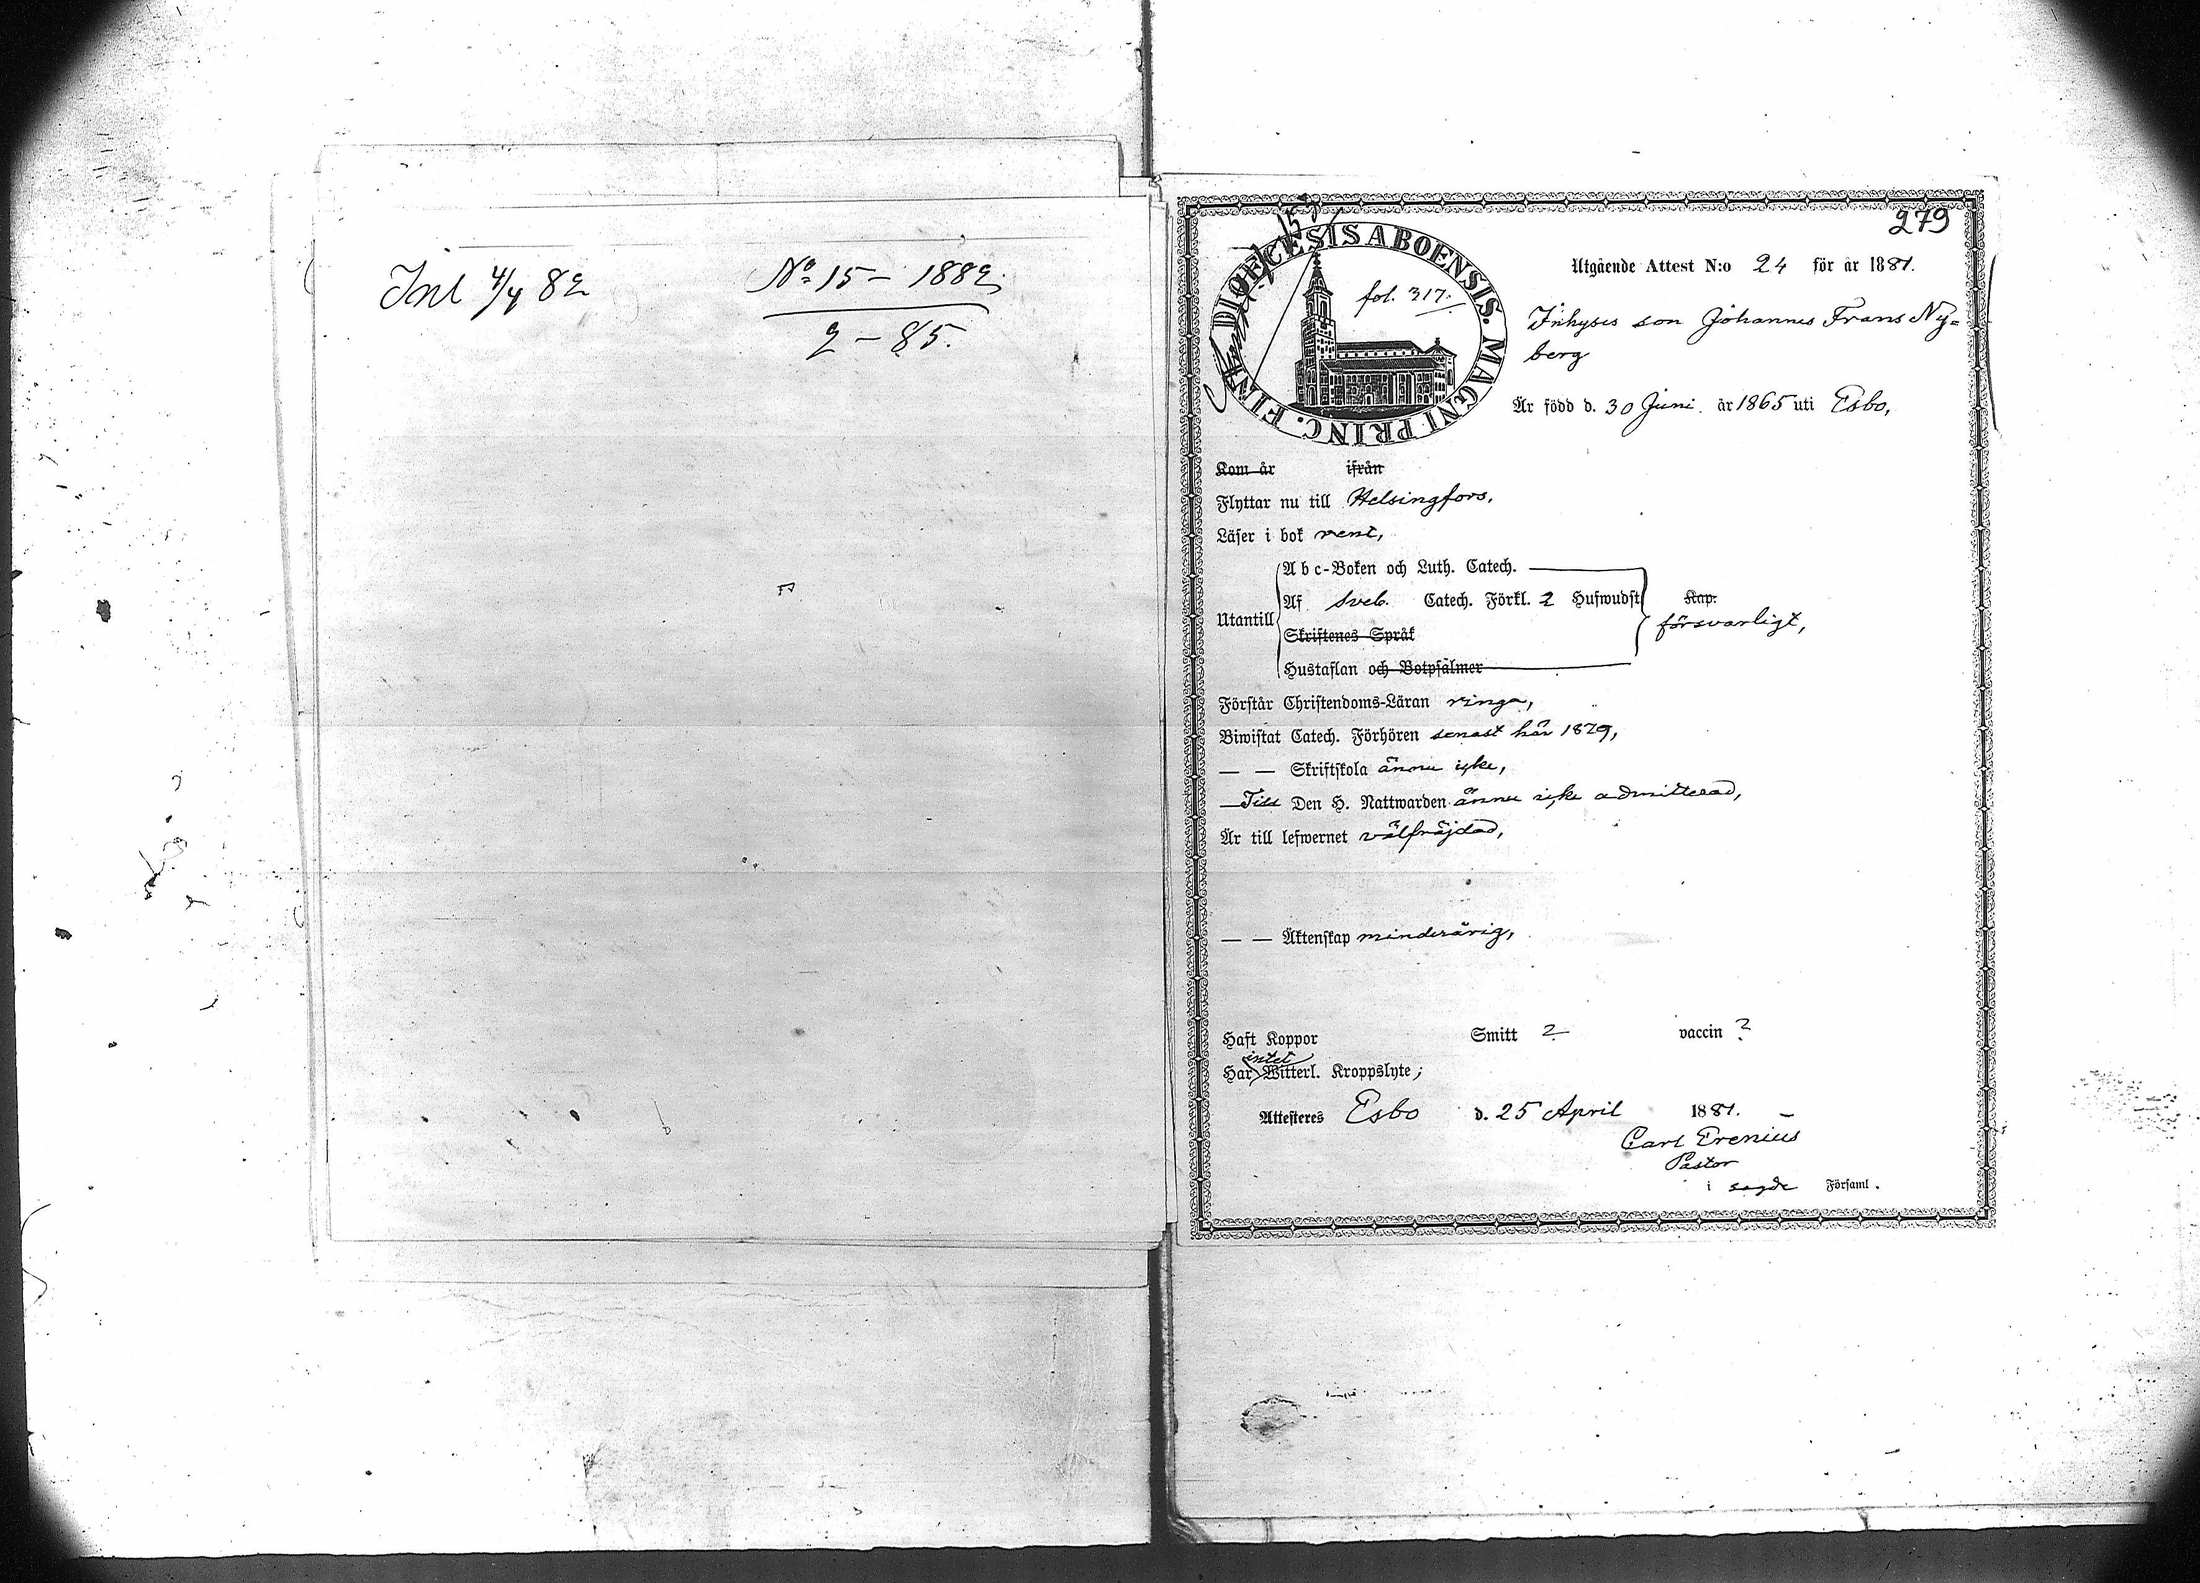 Inl 4/4 82
No 15 - 1882.
2 - 85.
279
DIOECESIS ABOENSIS. MAGNI PRINC. FINL.
fol. 317.
Utgående Attest N:o 24 för år 1881.
Inhyses son Johannes Frans Ny=
berg
Är född d. 30 Juni år 1865 uti Esbo,
Kom år ifrån
Flyttar nu till Helsingfors,
Läser i bok rent,
Abc-Boken och Luth. Catech.
Af Sveb. Catech. Förkl. 2 Hufwudst Kap.
Utantill försvarligt,
Skriftenes Språk
Hustaflan och Botpsalmer
Förstår Christendoms-Läran ringa,
Biwistat Catech. Förhören senast här 1879,
— — Skriftskola ännu icke,
Till Den H. Nattwarden ännu icke admitterad,
Är till lefwernet välfräjdad,
— — Äktenskap minderårig,
Haft Koppor Smitt ? vaccin ?
intet
Har Witterl. Kroppslyte,
Attesteres Esbo d. 25 April 1881.
Carl Prenius
Pastor
i sagde Församl.